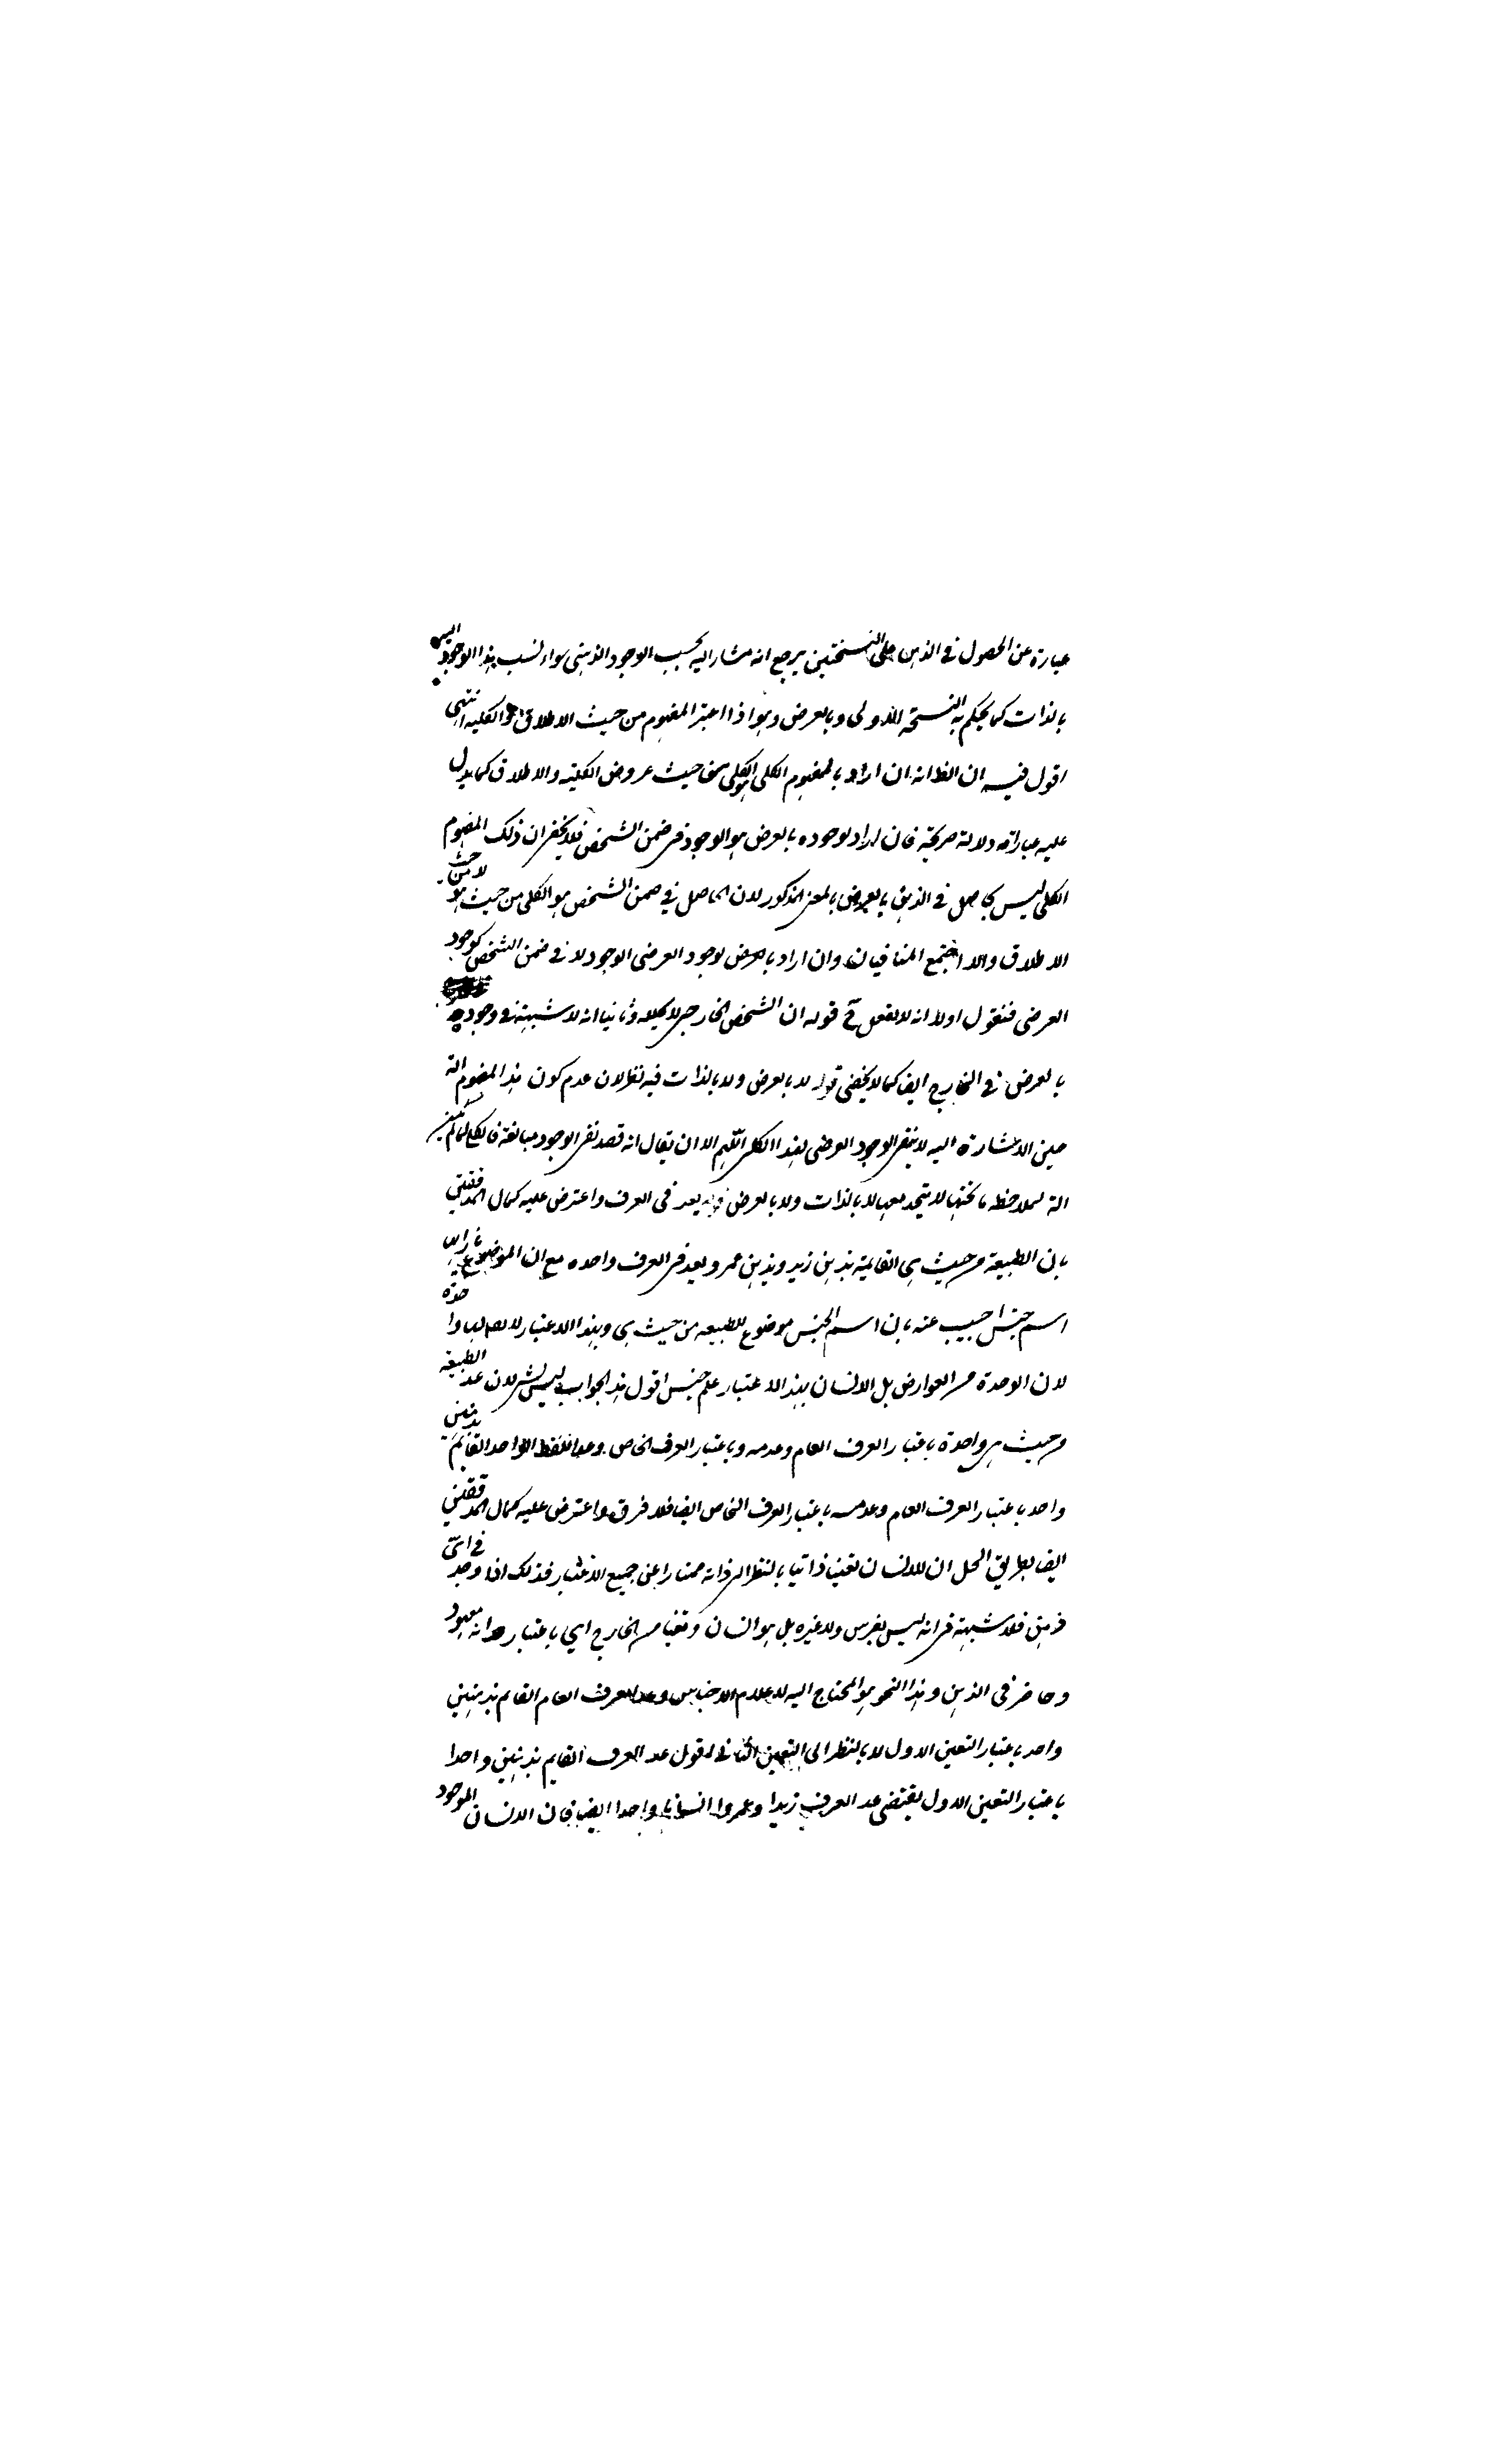 عبارة عن الحصول فى الذهن على النسختين يرجع انه مشار اليه بحسب الوجود الذهنى سواء نسب هذا الوجود اليه
بالذات كما يحكم به النسخة الاولى وبالعرض وهو اذا اعتبر المفهوم من حيث الاطلاق والكليه انتهى
اقول فيه ان الظ انه ان اراد بالمفهوم الكلى الكلى من حيث عروض الكلية والاطلاق كما يدل
عليه عباراته دلالة صريحة فان اراد بوجوده بالعرض هو الوجود فى ضمن الشخص فلا يخفى ان ذلك المفهوم
الكلى ليس بحاصل فى الذهن بالعرض بالمعنى المذكور لان الحاصل فى ضمن الشخص هو الكلى من حيث هو لا من حيث
الاطلاق والا اجتمع المتنافيان وان اراد بالعرض لوجود العرضى الوجود لا فى ضمن الشخص كوجود
العرضى فنقول اولا انه لا يقبل قوله ان الشخص الخارجى لا وثانيا انه لا شبهة فى وجوده
بالعرض فى الخارج ايض كما لا يخفى قوله لا بالعرض ولا بالذات فيه نظر لان عدم كون هذا المفهوم الة
حين الاشارة اليه لا ينفى الوجود العرضى لهذا الكلى اللهم الا ان يقال انه قصد نفى الوجود مبالغة
الة لملاحظة ما تحتها لا يتحد معها لا بالذات ولا بالعرض قوله يعد فى العرف واعترض عليه كمال المدققين
بان الطبيعة من حيث هى القائمة بذهن زيد وبذهن عمرو يعد فى العرف واحده مع ان الموضوع بازائه
اسم جنس اجيب عنه بان اسم الجنس موضوع للطبيعه من حيث هى وبهذا الاعتبار لا يقال لها واحدة
لان الوحدة من العوارض بل الانسان بهذا الاعتبار علم جنس اقول هذا الجواب ليس بشئ لان عد الطبيعة
من حيث هى واحدة باعتبار العرف العام وعدمه وباعتبار العرف الخاص وعد اللفظ الواحد القايم بذهنين
واحد باعتبار العرف العام وعدمه باعتبار العرف الخاص ايضا فلا فرق واعترض عليه كمال المدققين
ايض بطريق الحل ان للانسان تعينا ذاتيا بالنظر الى ذاته ممتازا عن جميع الاغيار فذلك اذا وجد فى اى
ذهن فلا شبهة فى انه ليس بفرس ولا غيره بل هو انسان وتعينا من الخارج اى باعتبار انه معهود
وحاضر فى الذهن وهذا النحو هو المحتاج اليه لاعلام الاجناس وعد العرف العام القايم بذهنين
واحد باعتبار التعين الاول لا بالنظر الى التعين الثانى اقول عد العرف القايم بذهنين واحدا
باعتبار التعين الاول يقتضى عد العرف زيدا وعمروا انسانا واحدا ايضا فان الانسان الموجود